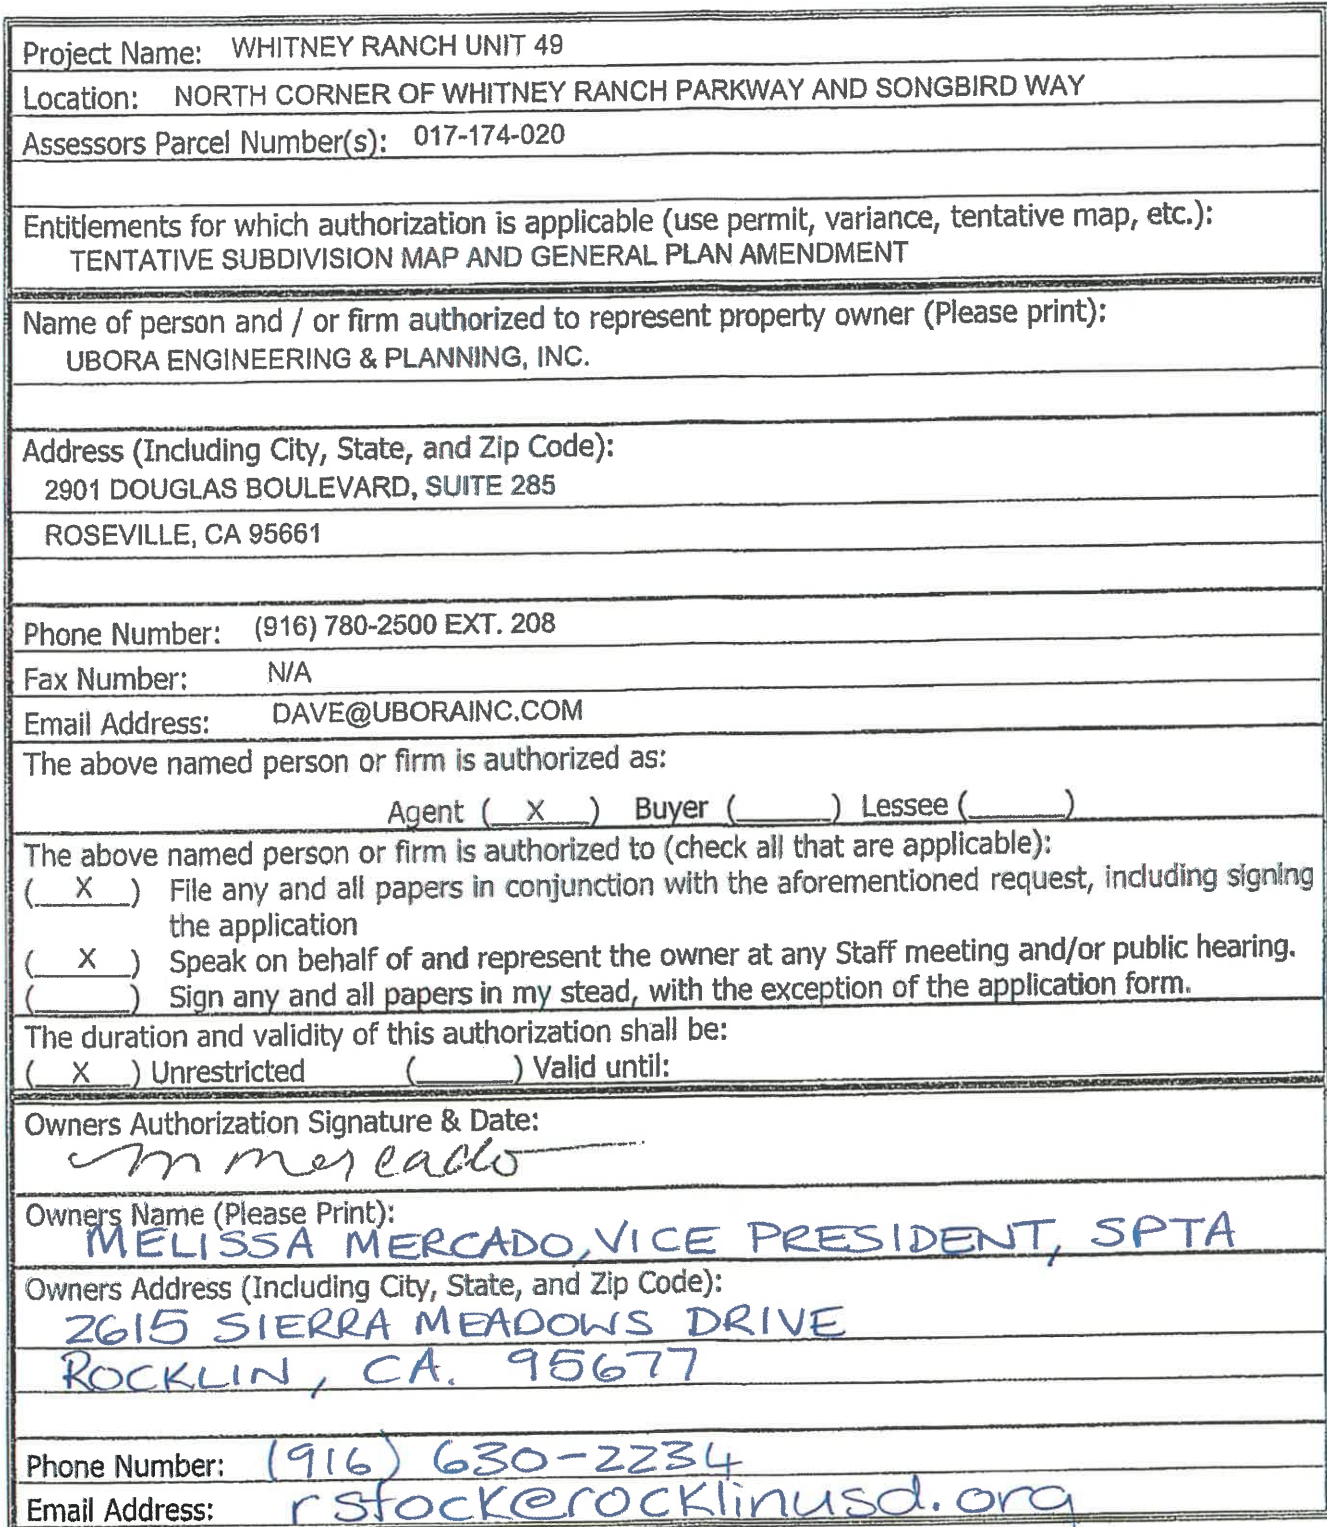 Project Name: WHITNEY RANCH UNIT 49
Location: NORTH CORNER OF WHITNEY RANCH PARKWAY AND SONGBIRD WAY
Assessors Parcel Number(s): 017-174-020
Entitlements for which authorization is applicable (use permit, variance, tentative map, etc.):
TENTATIVE SUBDIVISION MAP AND GENERAL PLAN AMENDMENT
Name of person and / or firm authorized to represent property owner (Please print):
UBORA ENGINEERING & PLANNING, INC.
Address (Including City, State, and Zip Code):
2901 DOUGLAS BOULEVARD, SUITE 285
ROSEVILLE, CA 95661
Phone Number: (916) 780-2500 EXT. 208
Fax Number: N/A
Email Address: DAVE@UBORAINC.COM
The above named person or firm is authorized as:
Agent ( X ) Buyer (______) Lessee (______)
The above named person or firm is authorized to (check all that are applicable):
( X ) File any and all papers in conjunction with the aforementioned request, including signing
the application
( X ) Speak on behalf of and represent the owner at any Staff meeting and/or public hearing.
(______) Sign any and all papers in my stead, with the exception of the application form.
The duration and validity of this authorization shall be:
( X ) Unrestricted (______) Valid until:
Owners Authorization Signature & Date:
m mercado
Owners Name (Please Print):
MELISSA MERCADO, VICE PRESIDENT, SPTA
Owners Address (Including City, State, and Zip Code):
2615 SIERRA MEADOWS DRIVE
ROCKLIN, CA. 95677
Phone Number: (916) 630-2234
Email Address: rstock@rocklinusd.org